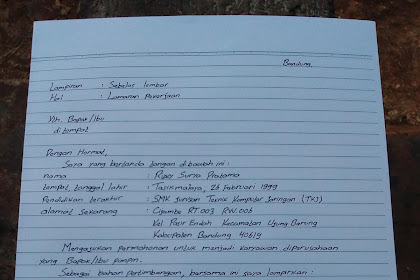 Bandung,
Lampiran : Sebelas lembar
Hal : Lamaran Pekerjaan
Yth. Bapak/Ibu
di tempat
Dengan Hormat,
Saya yang bertanda tangan dibawah ini :
nama : Surya Pratama
tempat, tanggal lahir : Tasikmalaya, 26 Februari 1999
Pendidikan terakhir : SMK Jurusan Teknik Komputer Jaringan (TKJ)
alamat sekarang : Cigambe RT.003 RW.005
Kel Pasir Endah Kecamatan Ujung Berung
Kabupaten Bandung 40619
Mengajukan Permohonan untuk menjadi karyawan diperusahaan
yang Bapak/Ibu pimpin.
Sebagai bahan pertimbangan, bersama ini saya lampirkan :